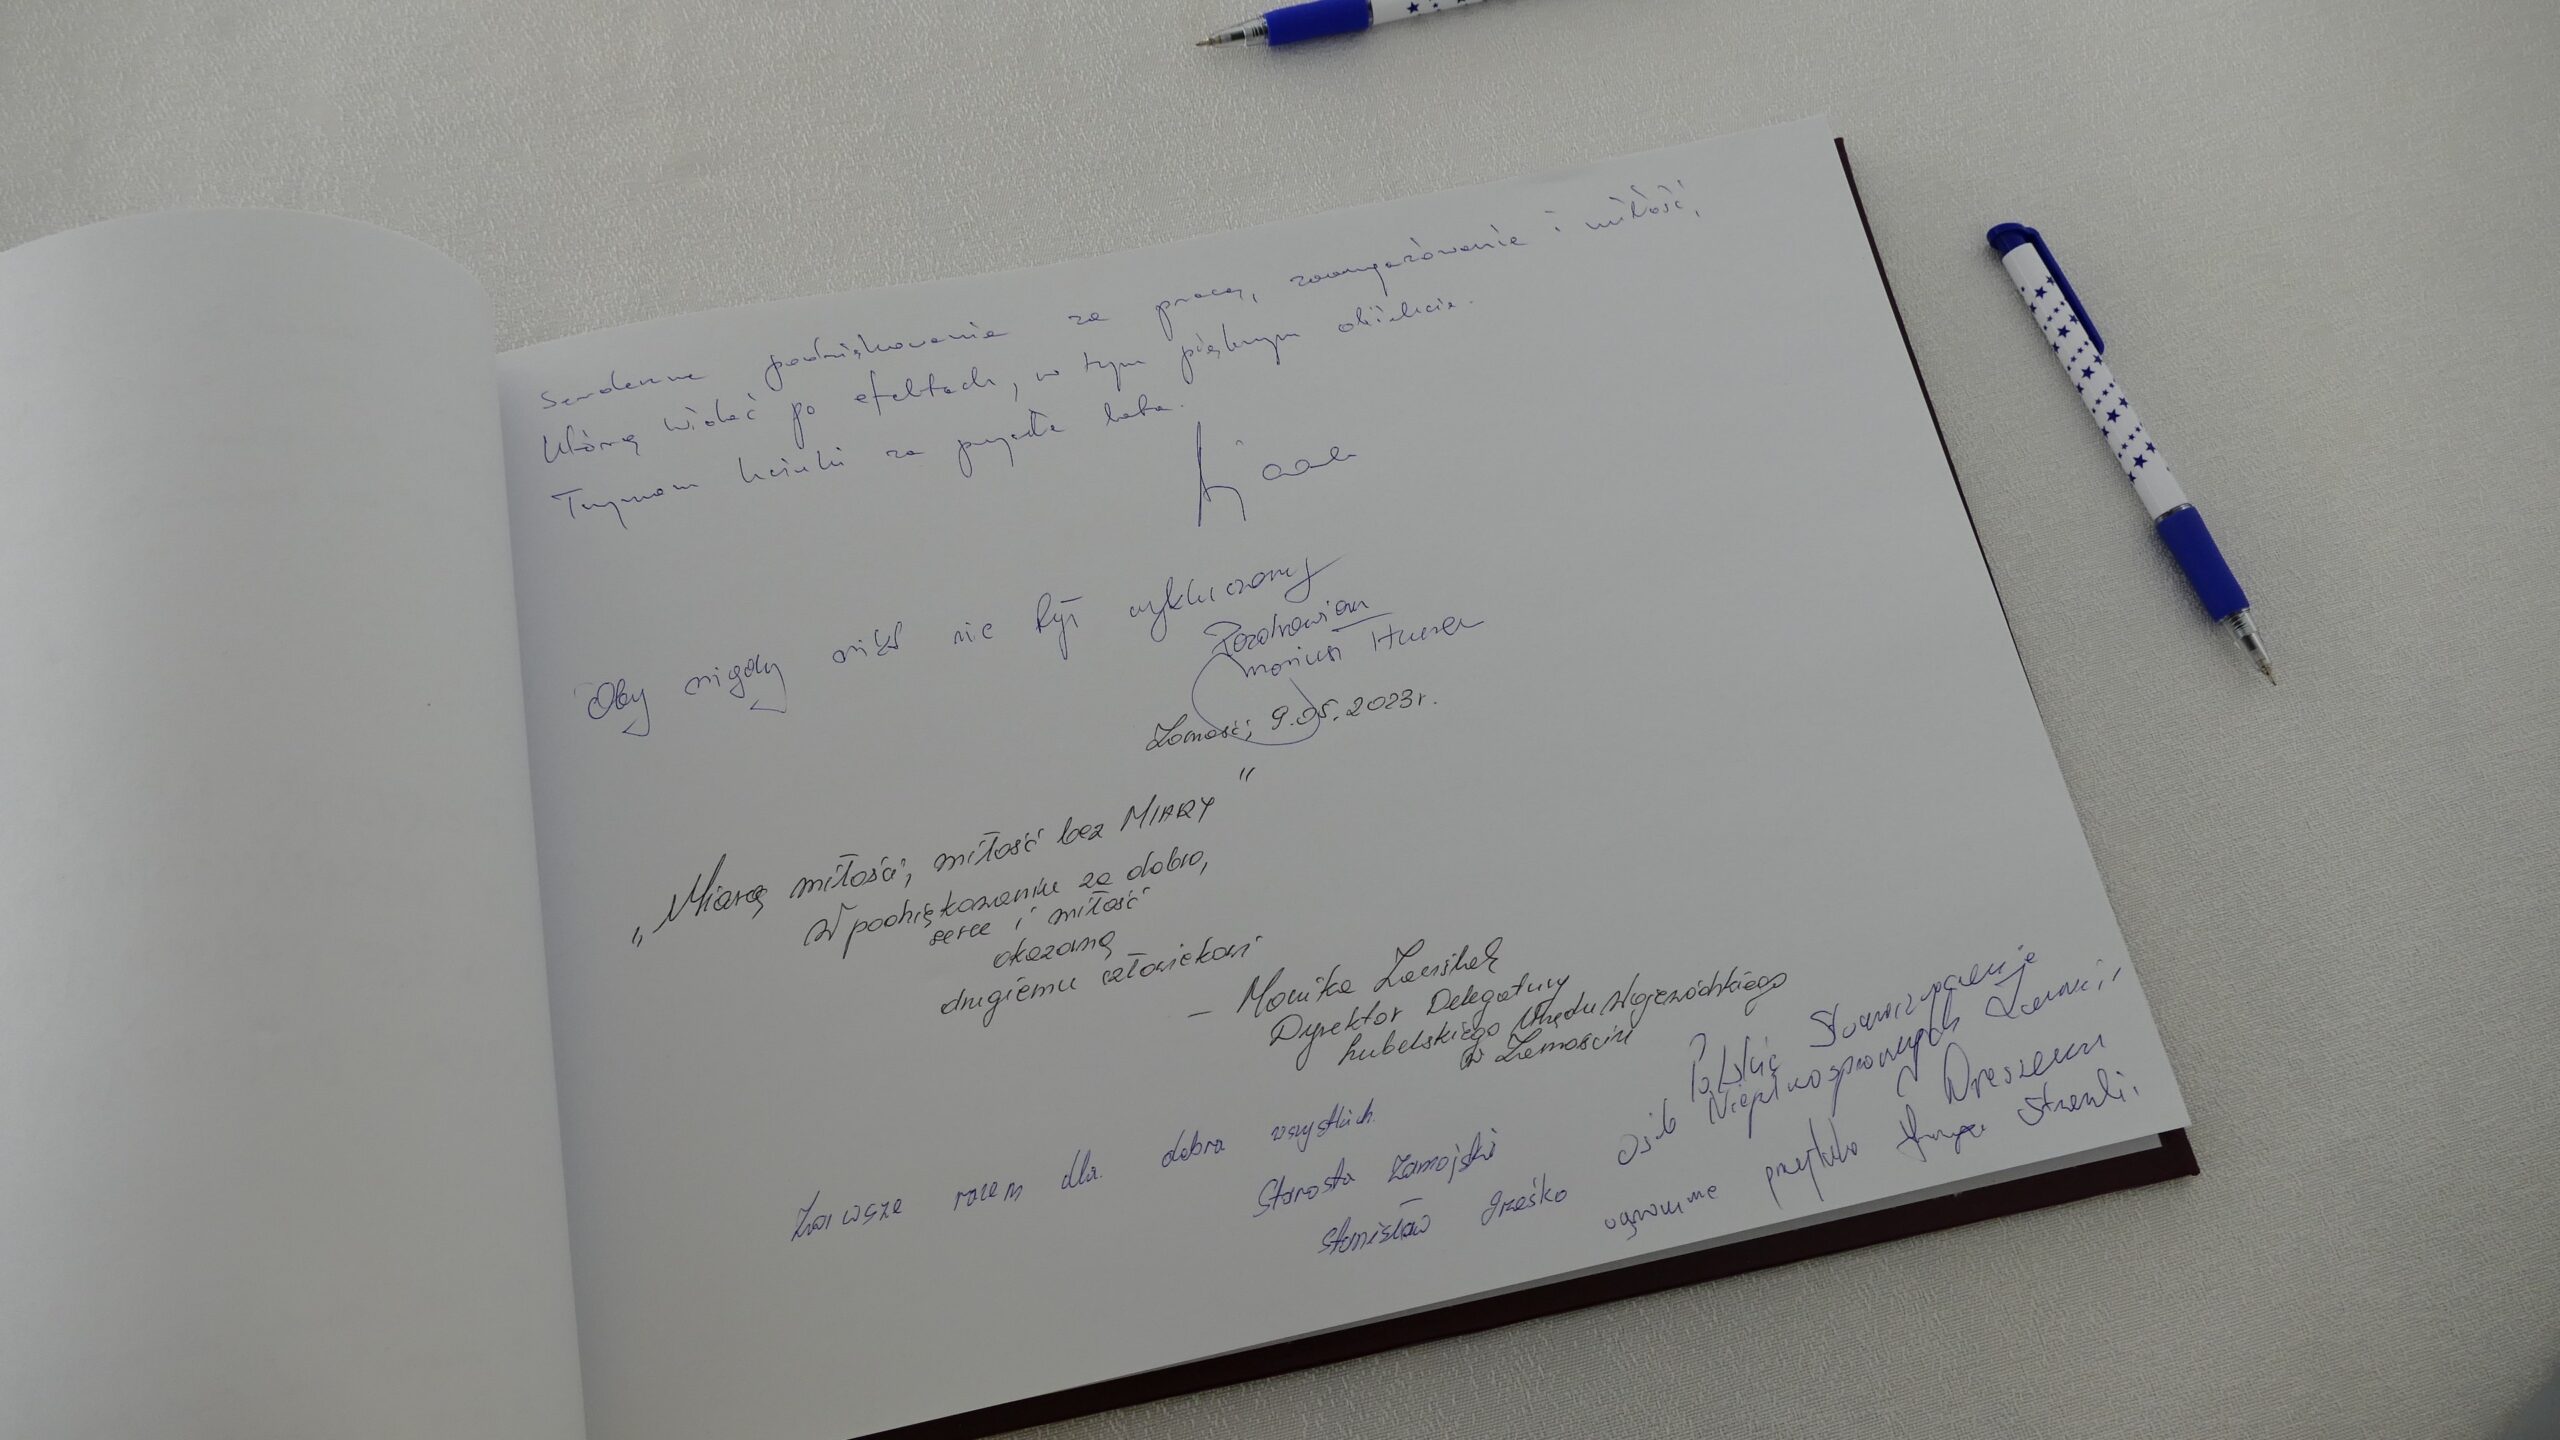 Serdeczne podziękowania za pracę, zaangażowanie i miłość,
którą widać po efektach, w tym pięknym obiekcie.
Trzymam kciuki za przyszłe lata.
Oby nigdy nikt nie był wykluczony
Pozdrawiam
Mariusz
Zamość, 9.05.2023r.
„Miarą miłości, miłość bez MIARY"
W podziękowaniu za dobro,
serce i miłość
okazaną
drugiemu człowiekowi
– Monika
Dyrektor Delegatury
Lubelskiego Urzędu Wojewódzkiego
w Zamościu
Zawsze razem dla dobra wszystkich.
Starosta Zamojski
Stanisław Grześko
Polskie Stowarzyszenie
Osób Niepełnosprawnych